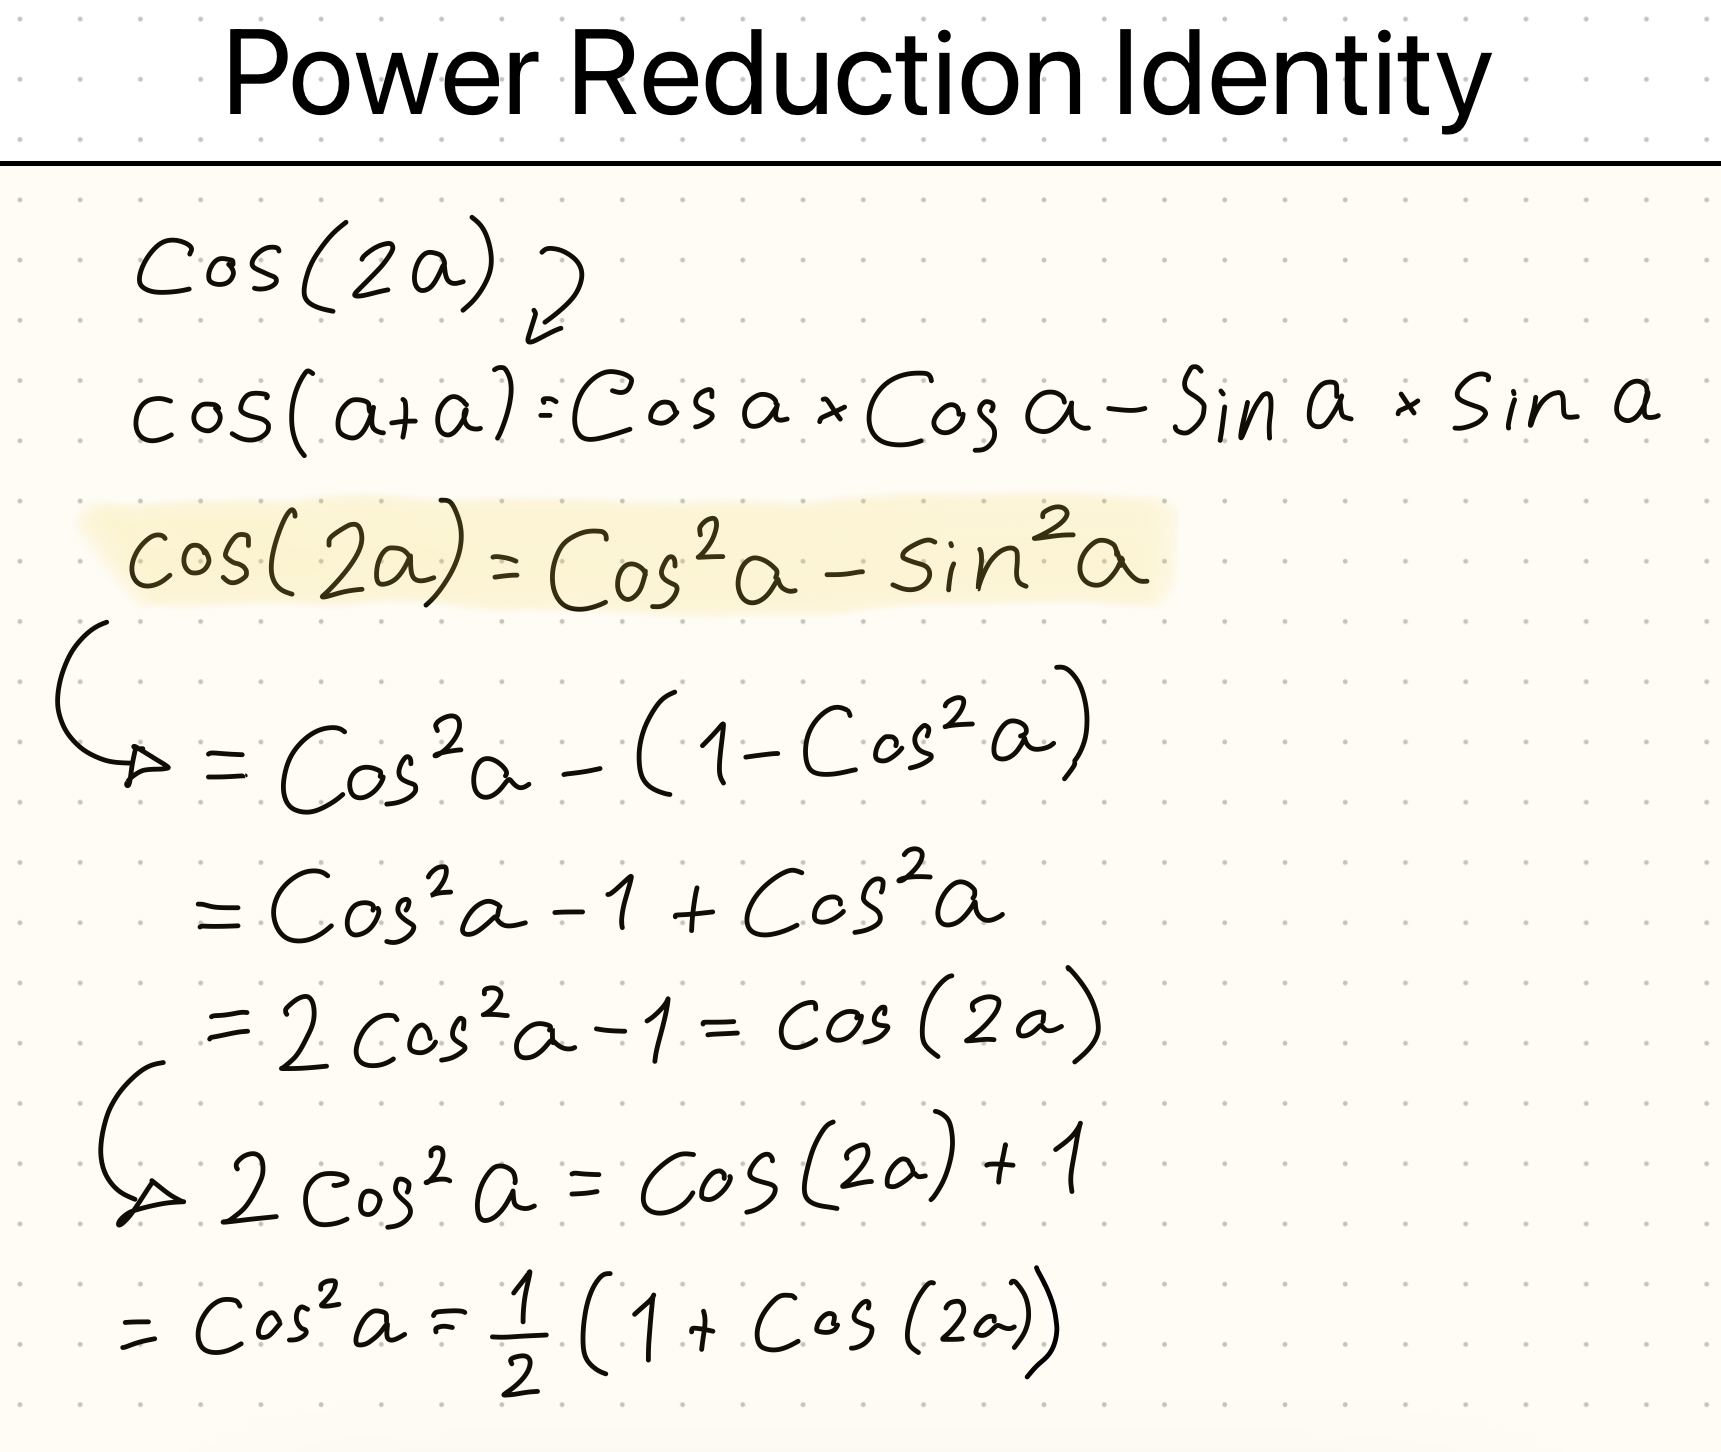 Power Reduction Identity
Cos(2a)
cos(a+a)=Cos a × Cos a − Sin a × Sin a
Cos(2a) = Cos²a − sin²a
= Cos²a − (1 − Cos²a)
= Cos²a − 1 + Cos²a
= 2 cos²a − 1 = cos(2a)
2 cos²a = Cos(2a) + 1
= Cos²a = 1/2 (1 + Cos(2a))